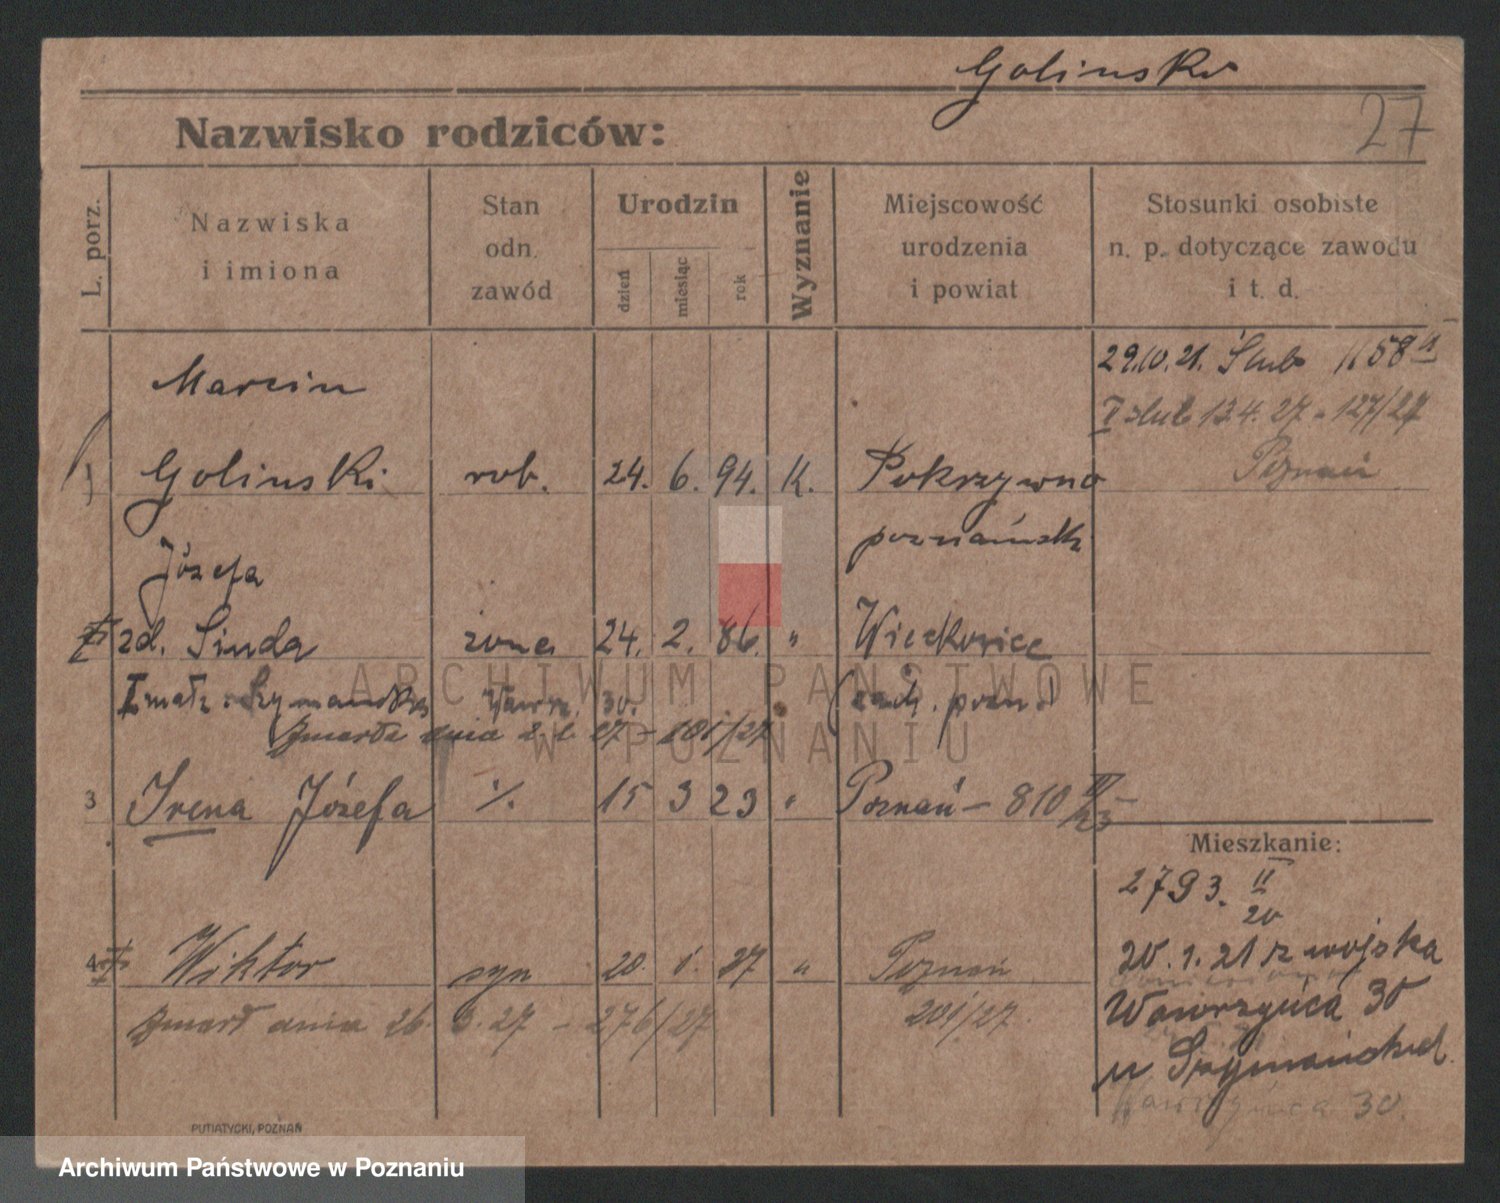 Golinski
27
Nazwisko rodziców:
L. porz.
Nazwiska
i imiona
Stan
odn.
zawód
Urodzin
dzień
miesiąc
rok
Wyznanie
Miejscowość
urodzenia
i powiat
Stosunki osobiste
n. p. dotyczące zawodu
i t. d.
29.10.21. Ślub 1158 II
Marcin
I ślub 13.4.27 - 127/27
Poznań
1 Golinski rob. 24. 6. 94. K. Pokrzywno
poznański
Józefa
zd. Sinda żona 24. 2. 86. " Wieckowice
Szymańska Wawrz. 30. (zach. pozn.)
Zmarła dnia 2.2.27 - 101/27
3 Irena Józefa ·/. 15 3 23 " Poznań - 810 III/23
Mieszkanie:
2793. II
20
4 Wiktor syn 20. 1. 27 " Poznań
20.1.21 z wojska
zmarł dnia 26. 3. 27 - 276/27 201/27
Wawrzyńca 30
u Szymańskich
Wawrzyńca 30.
PUTIATYCKI, POZNAŃ
ARCHIWUM PAŃSTWOWE
W POZNANIU
Archiwum Państwowe w Poznaniu